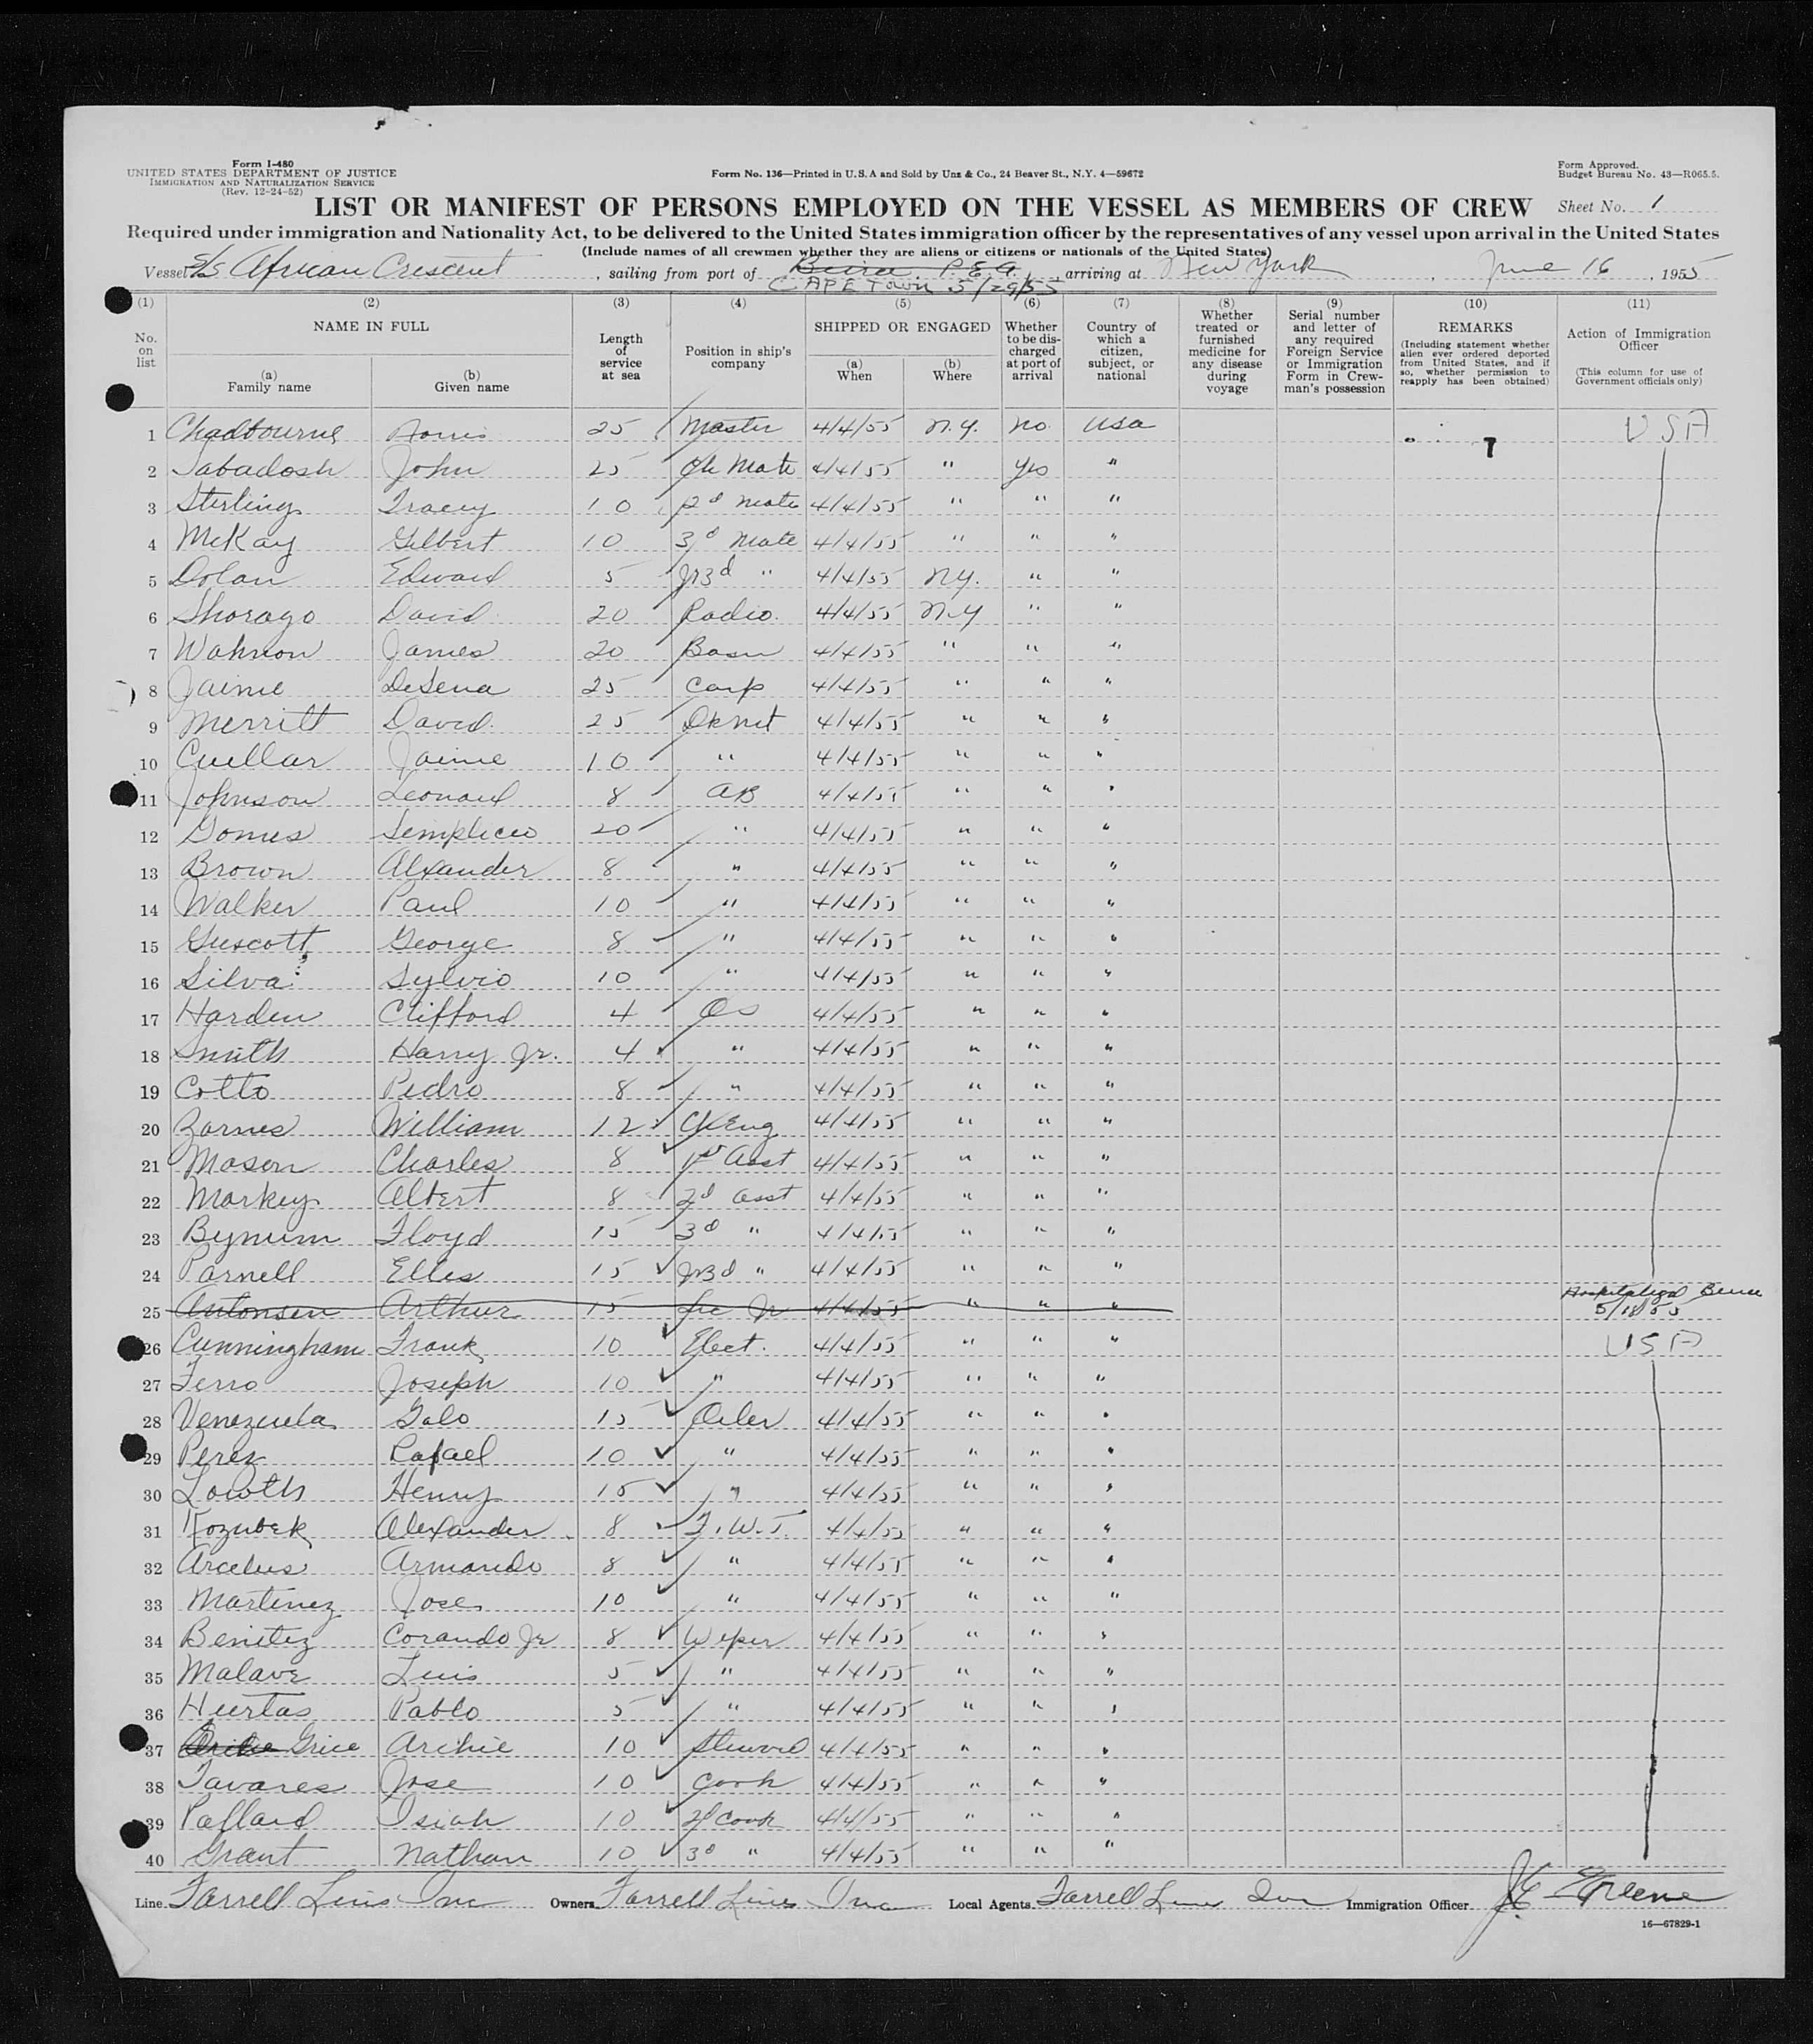 Form I-480
UNITED STATES DEPARTMENT OF JUSTICE
IMMIGRATION AND NATURALIZATION SERVICE
(Rev. 12-24-52)
Form No. 136—Printed in U.S.A and Sold by Unz & Co., 24 Beaver St., N.Y. 4—59672
Form Approved.
Budget Bureau No. 43—R065.5.
LIST OR MANIFEST OF PERSONS EMPLOYED ON THE VESSEL AS MEMBERS OF CREW
Sheet No. 1
Required under immigration and Nationality Act, to be delivered to the United States immigration officer by the representatives of any vessel upon arrival in the United States
(Include names of all crewmen whether they are aliens or citizens or nationals of the United States)
Vessel S/S African Crescent, sailing from port of Beira P.E.A., arriving at New York, June 16, 1955
CAPE TOWN 5/29/55
(1) (2) (3) (4) (5) (6) (7) (8) (9) (10) (11)
No. on list
NAME IN FULL
(a) Family name
(b) Given name
Length of service at sea
Position in ship's company
SHIPPED OR ENGAGED
(a) When
(b) Where
Whether to be discharged at port of arrival
Country of which a citizen, subject, or national
Whether treated or furnished medicine for any disease during voyage
Serial number and letter of any required Foreign Service or Immigration Form in Crewman's possession
REMARKS
(Including statement whether alien ever ordered deported from United States, and if so, whether permission to reapply has been obtained)
Action of Immigration Officer
(This column for use of Government officials only)
1 Chadbourne Norris 25 Master 4/4/55 N.Y. no USA 7 USA
2 Tabadosh John 25 Ch Mate 4/4/55 " Yes "
3 Sterling Tracey 10 2d Mate 4/4/55 " " "
4 McKay Gilbert 10 3d Mate 4/4/55 " " "
5 Dolan Edward 5 Jr3d " 4/4/55 N.Y. " "
6 Shorago David 20 Radio 4/4/55 N.Y " "
7 Wahnon James 20 Bosn 4/4/55 " " "
8 Jaime DeSena 25 Carp 4/4/55 " " "
9 Merritt David 25 Dk Mt 4/4/55 " " "
10 Cuellar Jaime 10 " 4/4/55 " " "
11 Johnson Leonard 8 AB 4/4/55 " " "
12 Gomes Semplicio 20 " 4/4/55 " " "
13 Brown Alxander 8 " 4/4/55 " " "
14 Walker Paul 10 " 4/4/55 " " "
15 Guscott George 8 " 4/4/55 " " "
16 Silva Sylvio 10 " 4/4/55 " " "
17 Harden Clifford 4 OS 4/4/55 " " "
18 Smith Harry Jr. 4 " 4/4/55 " " "
19 Cotto Pedro 8 " 4/4/55 " " "
20 Zarnes William 12 Ch Eng 4/4/55 " " "
21 Mason Charles 8 1st Asst 4/4/55 " " "
22 Markey Albert 8 2d Asst 4/4/55 " " "
23 Bynum Floyd 15 3d " 4/4/55 " " "
24 Parnell Elles 15 Jr3d " 4/4/55 " " "
25 Antonsen Arthur 15 Jr 4/4/55 " " " Hospitalized Beira 5/18/55
26 Cunningham Frank 10 Elect. 4/4/55 " " " USA
27 Ferro Joseph 10 " 4/4/55 " " "
28 Venezuela Galo 15 Oiler 4/4/55 " " "
29 Perez Rafael 10 " 4/4/55 " " "
30 Lowth Henry 15 " 4/4/55 " " "
31 Kozubek Alexander 8 F.W.T. 4/4/55 " " "
32 Arcelus Armando 8 " 4/4/55 " " "
33 Martinez Jose 10 " 4/4/55 " " "
34 Benitez Corando Jr 8 Wiper 4/4/55 " " "
35 Malave Luis 5 " 4/4/55 " " "
36 Huertas Pablo 5 " 4/4/55 " " "
37 Archie Grice Archie 10 Steward 4/4/55 " " "
38 Tavares Jose 10 Cook 4/4/55 " " "
39 Pallard Isiah 10 2d Cook 4/4/55 " " "
40 Grant Nathan 10 3d " 4/4/55 " " "
Line Farrell Lines Inc Owners Farrell Lines Inc Local Agents Farrell Lines Inc Immigration Officer Greene
16—67829-1